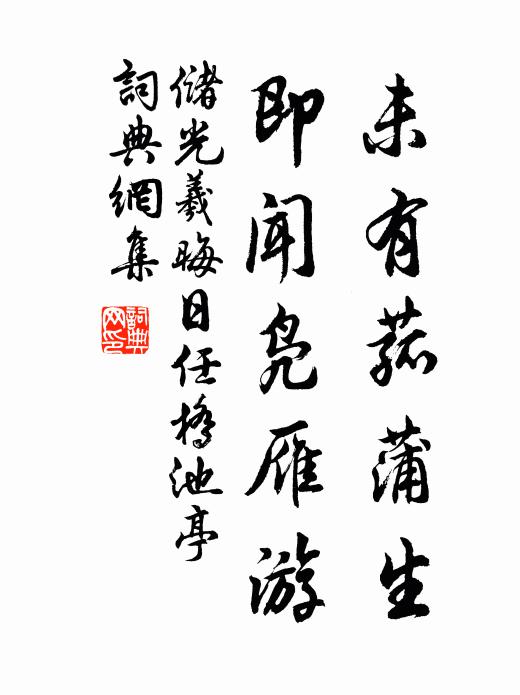 未有菰蒲生
即闻凫雁游
儲光羲晦日任橋池亭
詞典網集
詞典网印